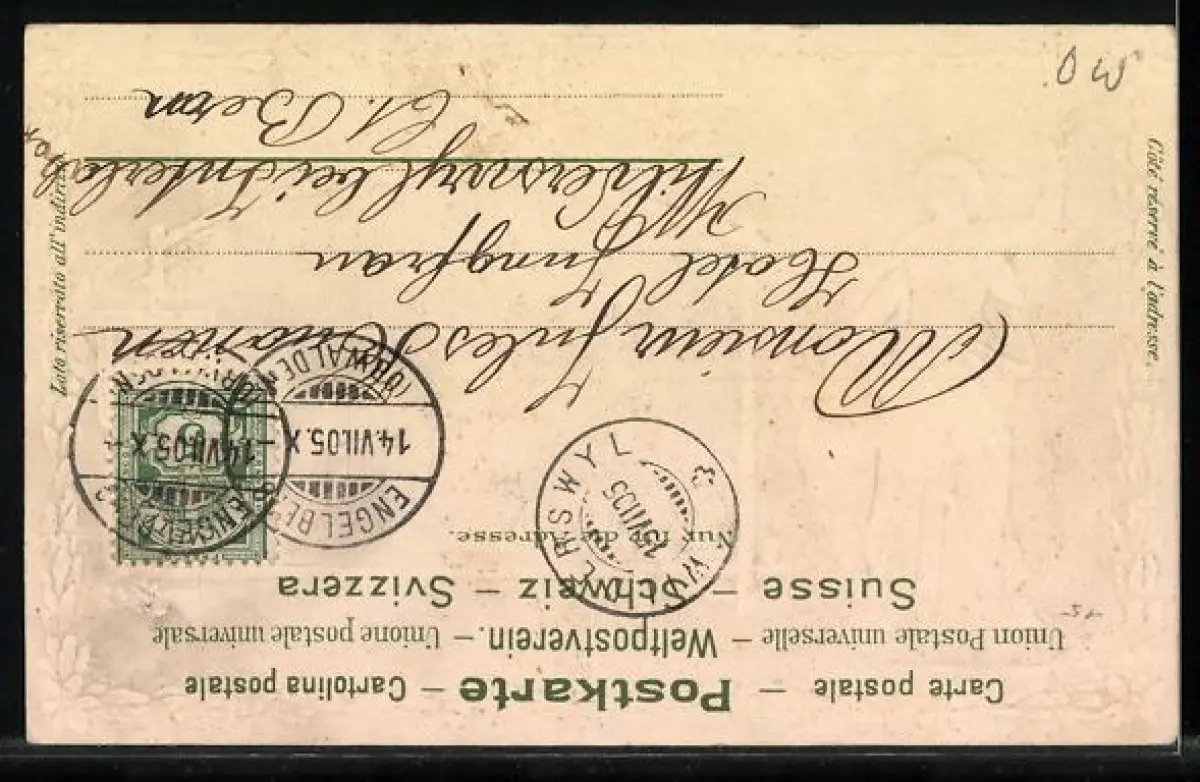 Carte postale – Postkarte – Cartolina postale
Union Postale universelle – Weltpostverein. – Unione postale universale
Suisse – Schweiz – Svizzera
Nur für die Adresse.
Côté réservé à l'adresse.
Lato riservato all'indirizzo
WILDERSWYL
15.VII.05
ENGELBERG
14.VII.05.X
(OBWALDEN)
ENGELBERG
14.VII.05.X
5
Monsieur Jules
Hotel Jungfrau
Wilderswyl bei Interlaken
Ct. Bern
OW